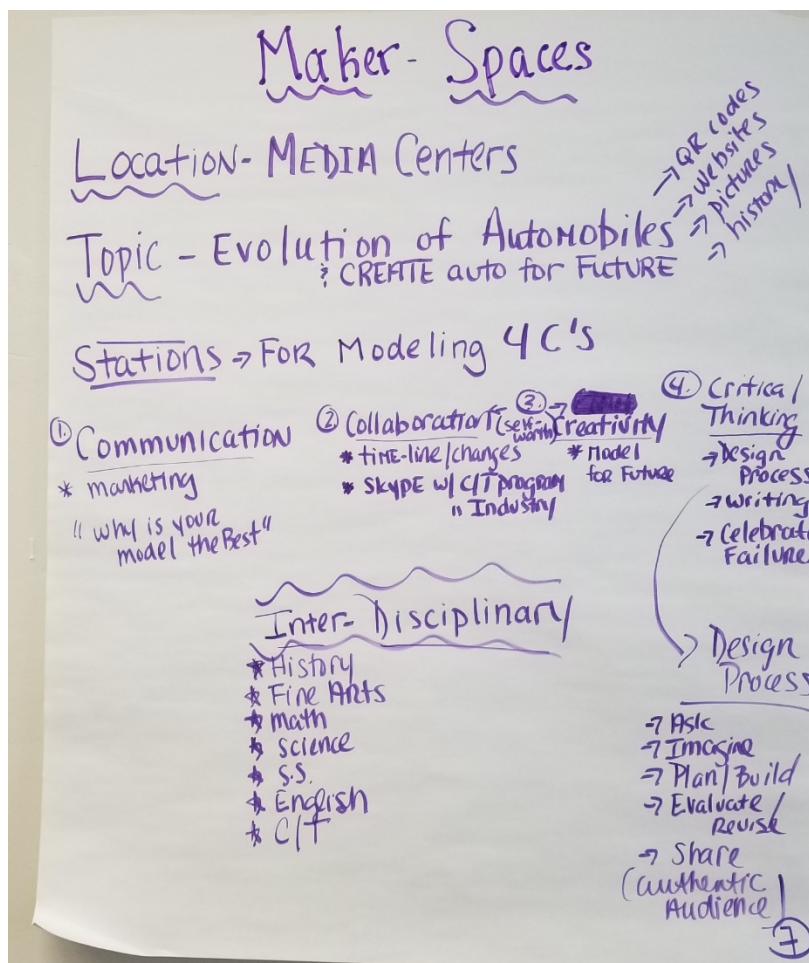 Maker-Spaces
Location - MEDIA Centers
Topic - Evolution of Automobiles
& CREATE auto for FUTURE
→ QR codes
→ websites
→ pictures
→ history
Stations → FOR Modeling 4 C's
①. Communication
* marketing
"why is your
model the Best"
② Collaboration (self-worth)
* TIME-line/changes
* SKYPE w/ C/T program
" Industry
③. → Creativity
* Model
for Future
④. Critical
Thinking
→ Design
Process
→ writing
→ Celebrate
Failure
Inter-Disciplinary
* History
* Fine Arts
* math
* science
* S.S.
* English
* C/T
Design
Process
→ Ask
→ Imagine
→ Plan/Build
→ Evaluate/
Revise
→ Share
(authentic
Audience)
⑦